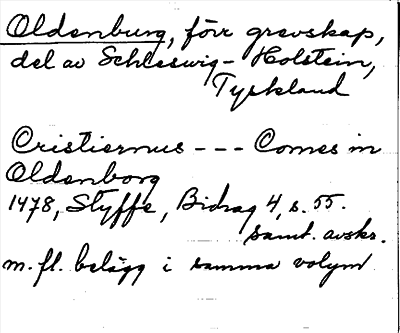 Oldenburg, förr grevskap,
del av Schleswig-Holstein,
Tyskland
Cristiernus --- Comes in
Oldenborg
1478, Styffe, Bidrag 4, s. 55.
samt. avskr.
m. fl. belägg i samma volym